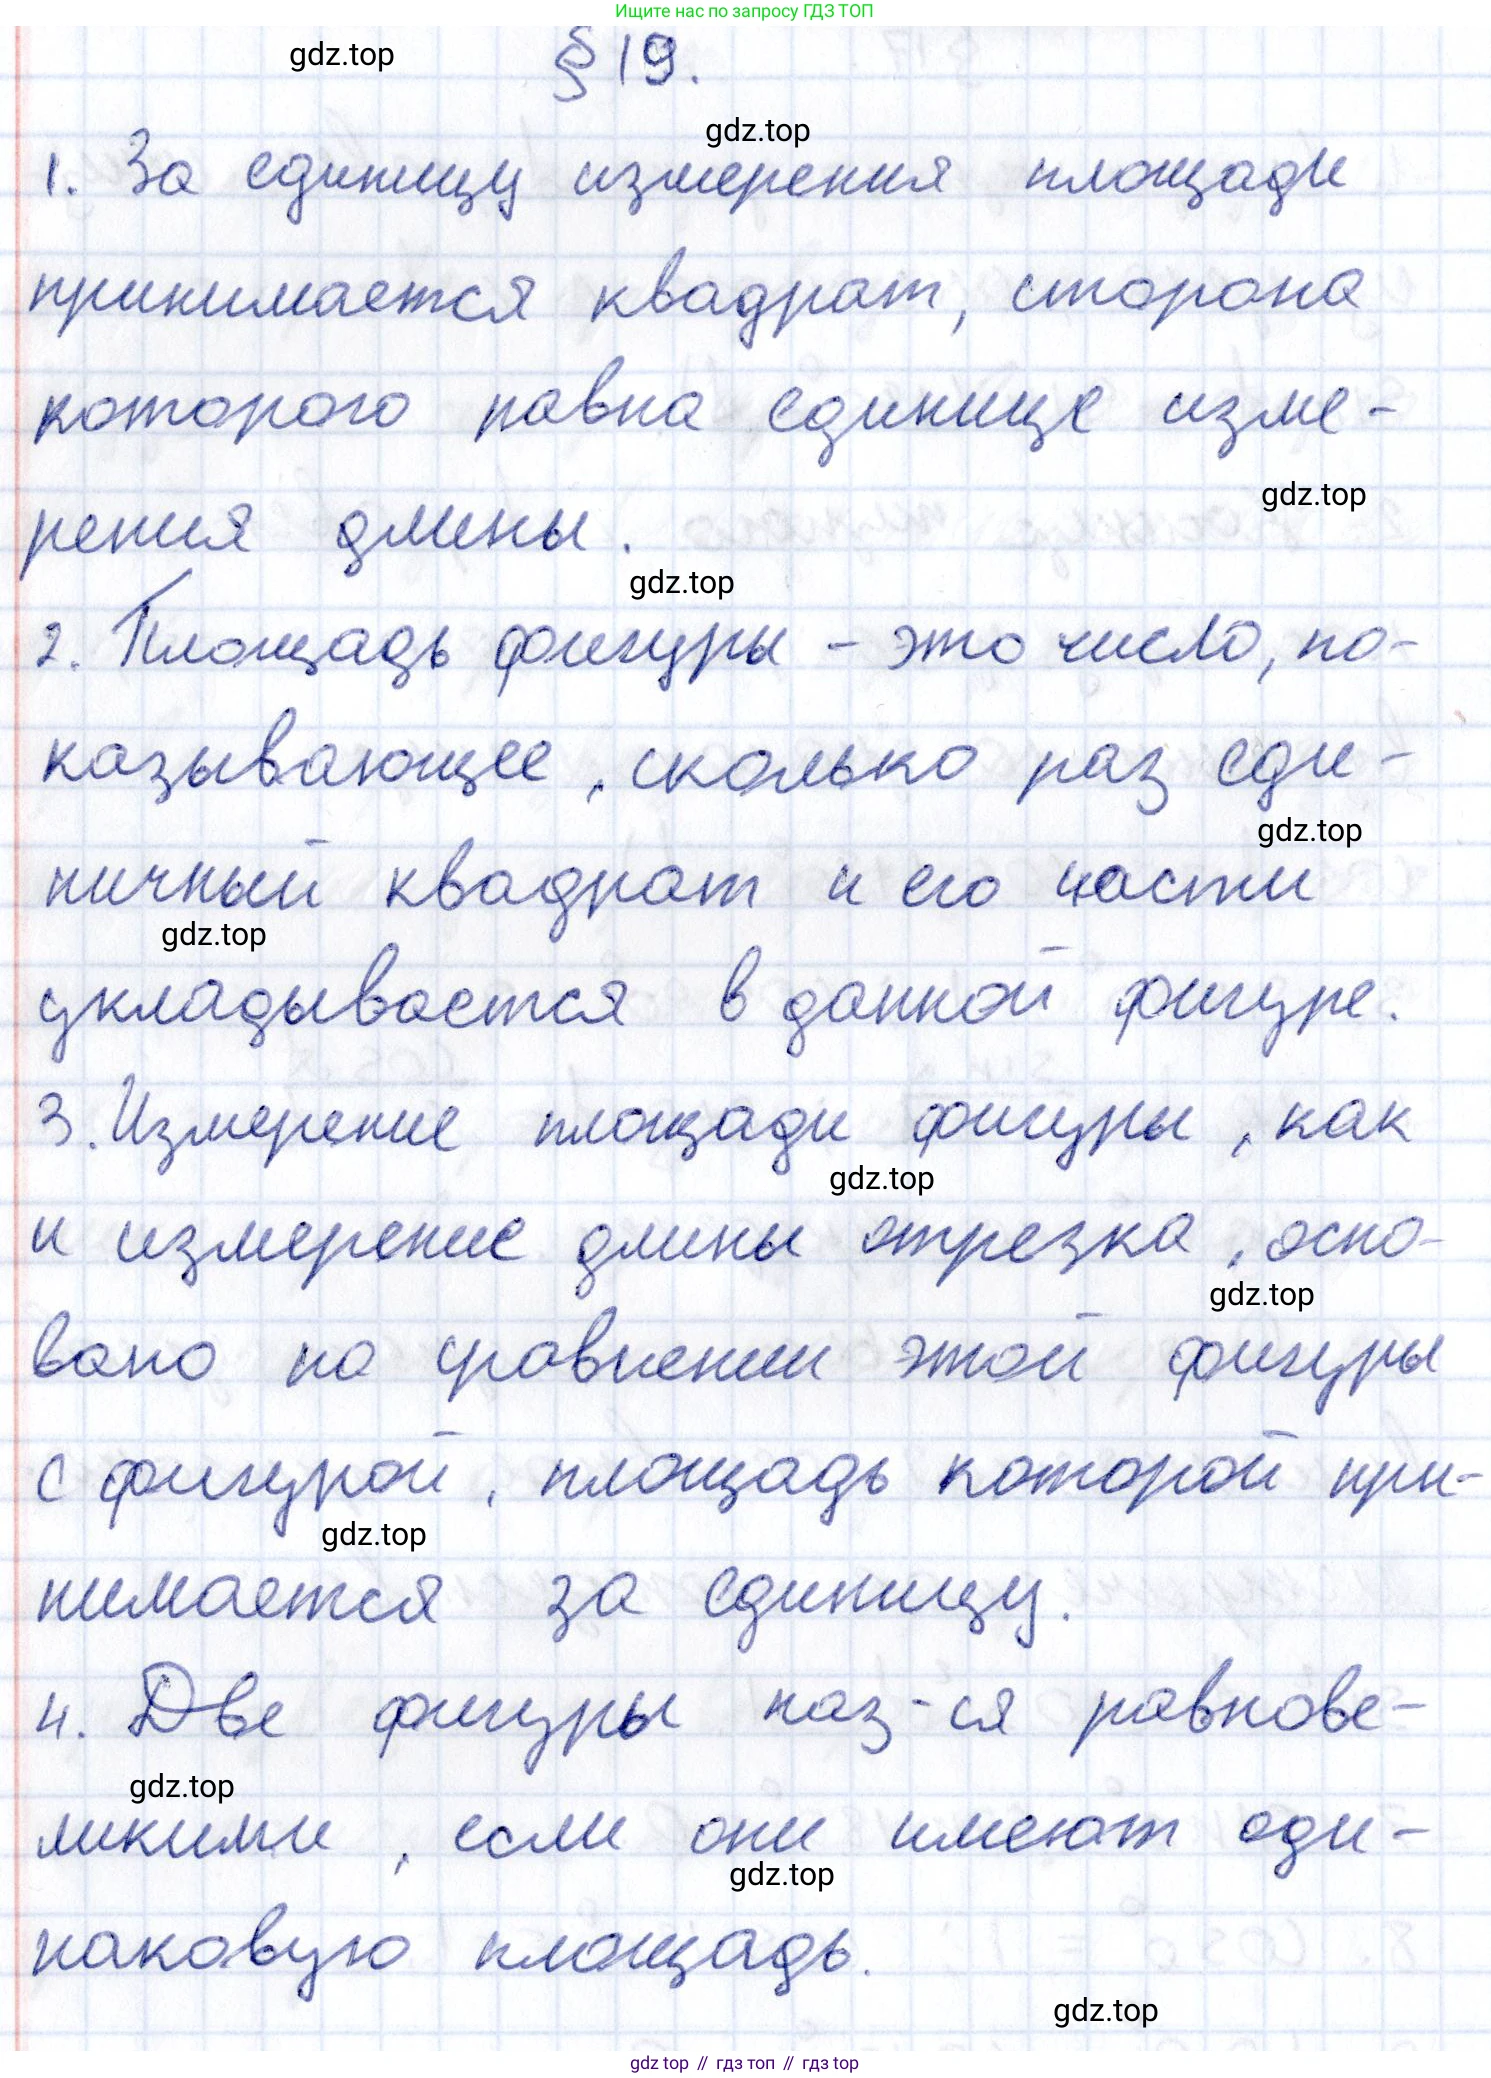 Ищите нас по запросу ГДЗ ТОП
gdz.top
§ 19.
gdz.top
1. За единицу измерения площади
принимается квадрат, сторона
которого равна единице изме-
gdz.top
рения длины.
gdz.top
2. Площадь фигуры - это число, по-
казывающее, сколько раз еди-
gdz.top
ничный квадрат и его части
gdz.top
укладывается в данной фигуре.
3. Измерение площади фигуры, как
gdz.top
и измерение длины отрезка, осно-
gdz.top
вано на сравнении этой фигуры
с фигурой, площадь которой при-
gdz.top
нимается за единицу.
4. Две фигуры наз-ся равнове-
gdz.top
ликими, если они имеют оди-
gdz.top
наковую площадь.
gdz.top
gdz top // гдз топ // гдз top